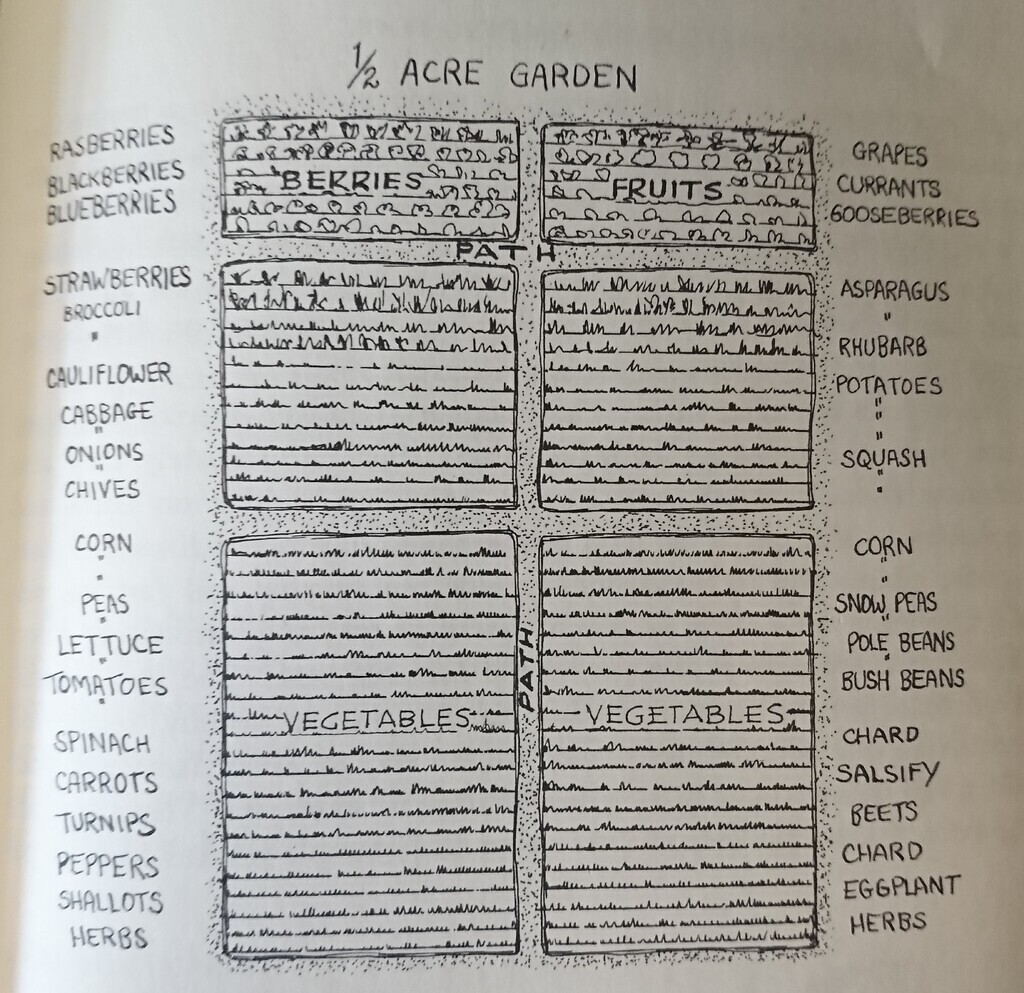 ½ ACRE GARDEN
RASBERRIES
BLACKBERRIES
BLUEBERRIES
BERRIES
FRUITS
GRAPES
CURRANTS
GOOSEBERRIES
PATH
STRAWBERRIES
BROCCOLI
"
CAULIFLOWER
CABBAGE
"
ONIONS
"
CHIVES
ASPARAGUS
"
RHUBARB
POTATOES
"
"
SQUASH
"
"
CORN
"
"
PEAS
"
LETTUCE
"
TOMATOES
"
SPINACH
CARROTS
TURNIPS
PEPPERS
SHALLOTS
HERBS
PATH
VEGETABLES
VEGETABLES
CORN
"
"
SNOW PEAS
"
POLE BEANS
"
BUSH BEANS
CHARD
SALSIFY
BEETS
CHARD
EGGPLANT
HERBS